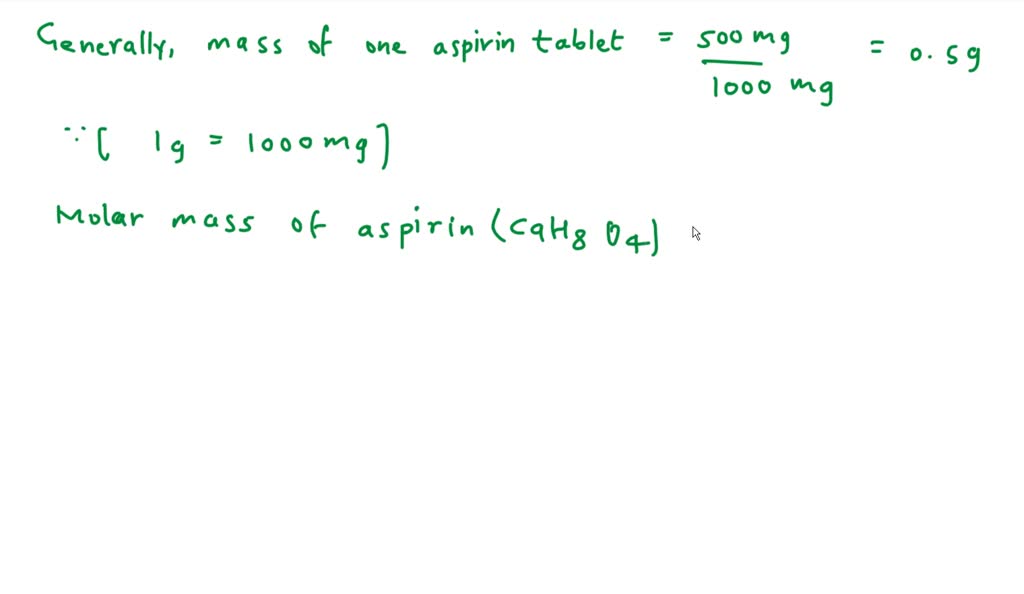 Generally, mass of one aspirin tablet = 500 mg / 1000 mg = 0.5g
∵ [ 1g = 1000 mg ]
Molar mass of aspirin (C9H8O4)